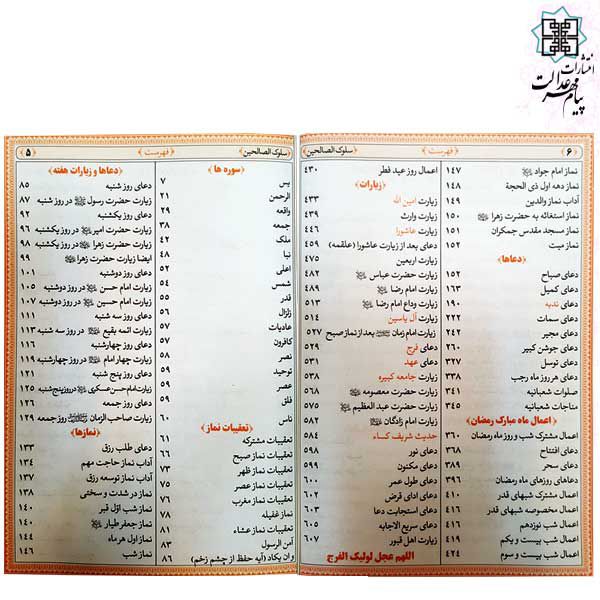 انتشارات
پیام مهر عدالت
۶ فهرست سلوک الصالحین
نماز امام جواد ۱۴۷
نماز دهه اول ذی الحجة ۱۴۸
آداب نماز والدین ۱۴۹
نماز استغاثه به حضرت زهرا ۱۵۰
نماز مسجد مقدس جمکران ۱۵۱
نماز میت ۱۵۲
﴿دعاها﴾
دعای صباح ۱۵۲
دعای کمیل ۱۶۳
دعای ندبه ۱۹۰
دعای سمات ۲۲۲
دعای مجیر ۲۴۲
دعای جوشن کبیر ۲۶۰
دعای توسل ۳۲۷
دعای هرروز ماه رجب ۳۳۸
صلوات شعبانیه ۳۴۱
مناجات شعبانیه ۳۴۵
﴿اعمال ماه مبارک رمضان﴾
اعمال مشترک شب و روز ماه رمضان ۳۶۰
دعای افتتاح ۳۶۸
دعای سحر ۳۸۹
دعاهای روزهای ماه رمضان ۳۹۶
اعمال مشترک شبهای قدر ۴۱۰
اعمال مخصوصه شبهای قدر ۴۱۶
اعمال شب نوزدهم ۴۱۶
اعمال شب بیست و یکم ۴۱۹
اعمال شب بیست و سوم ۴۲۴
اعمال روز عید فطر ۴۳۰
﴿زیارات﴾
زیارت امین الله ۴۳۳
زیارت وارث ۴۳۹
زیارت عاشورا ۴۴۶
دعای بعد از زیارت عاشورا (علقمه) ۴۵۹
زیارت اربعین ۴۷۵
زیارت حضرت عباس ۴۸۲
زیارت امام رضا ۴۸۹
زیارت وداع امام رضا ۵۱۳
زیارت آل یاسین ۵۱۴
زیارت امام زمان بعد از نماز صبح ۵۲۷
دعای فرج ۵۲۹
دعای عهد ۵۳۱
زیارت جامعه کبیره ۵۳۸
زیارت حضرت معصومه ۵۶۸
زیارت حضرت عبد العظیم ۵۷۵
زیارت امام زادگان ۵۸۲
حدیث شریف کساء ۵۸۴
دعای نور ۵۹۸
دعای مکنون ۵۹۹
دعای طول عمر ۶۰۰
دعای ادای قرض ۶۰۲
دعای استجابت دعا ۶۰۳
دعای سریع الاجابه ۶۰۵
زیارت اهل قبور ۶۰۷
اللهم عجل لولیک الفرج
سلوک الصالحین فهرست ۵
﴿سوره ها﴾
یس ۷
الرحمن ۲۱
واقعه ۲۹
جمعه ۳۸
ملک ۴۲
نبا ۴۸
اعلی ۵۲
شمس ۵۴
قدر ۵۵
زلزال ۵۶
عادیات ۵۷
کافرون ۵۷
نصر ۵۸
توحید ۵۹
عصر ۵۹
فلق ۵۹
ناس ۶۰
﴿تعقیبات نماز﴾
تعقیبات مشترکه ۶۱
تعقیبات نماز صبح ۶۶
تعقیبات نماز ظهر ۷۳
تعقیبات نماز عصر ۷۵
تعقیبات نماز مغرب ۷۶
نماز غفیله ۷۸
تعقیبات نماز عشاء ۸۱
آمن الرسول ۸۳
وان یکاد (آیه حفظ از چشم زخم) ۸۶
﴿دعاها و زیارات هفته﴾
دعای روز شنبه ۸۵
زیارت حضرت رسول در روز شنبه ۸۷
دعای روز یکشنبه ۹۲
زیارت حضرت امیر در روز یکشنبه ۹۶
زیارت حضرت زهرا در روز یکشنبه ۹۸
ایضا زیارت حضرت زهرا ۹۹
دعای روز دوشنبه ۱۰۱
زیارت امام حسن در روز دوشنبه ۱۰۵
زیارت امام حسین در روز دوشنبه ۱۰۷
دعای روز سه شنبه ۱۱۱
زیارت ائمه بقیع در روز سه شنبه ۱۱۳
دعای روز چهارشنبه ۱۱۶
زیارت چهار امام در روز چهارشنبه ۱۱۹
دعای روز پنج شنبه ۱۲۱
زیارت امام حسن عسکری در روز پنج شنبه ۱۲۵
دعای روز جمعه ۱۲۶
زیارت صاحب الزمان روز جمعه ۱۲۹
﴿نمازها﴾
دعای طلب رزق ۱۳۳
آداب نماز حاجت مهم ۱۳۴
آداب نماز توسعه رزق ۱۳۷
نماز در شدت و سختی ۱۳۸
نماز شب اوّل قبر ۱۴۰
نماز جعفر طیار ۱۴۰
نماز اول هر ماه ۱۴۴
نماز شب ۱۴۶